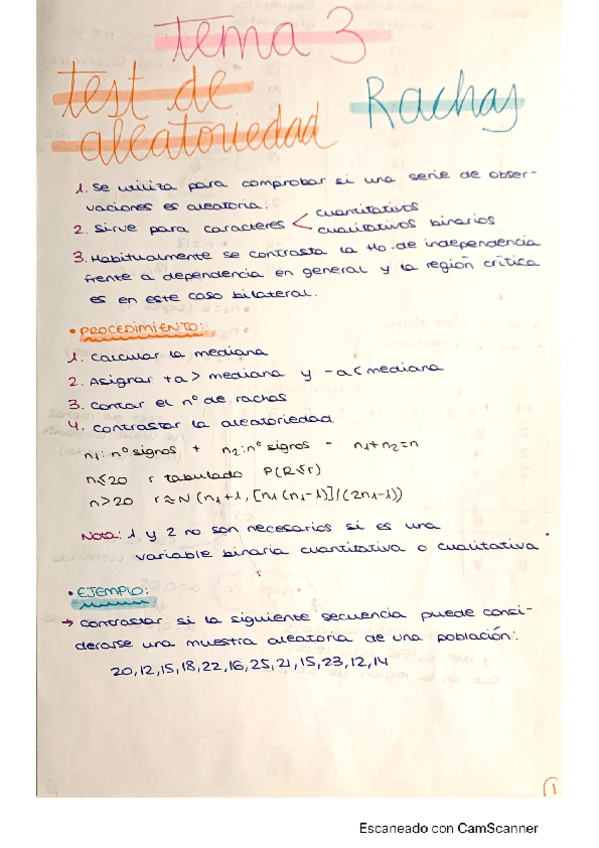 tema 3
test de aleatoriedad
Rachas
1. Se utiliza para comprobar si una serie de obser-
vaciones es aleatoria.
2. Sirve para caracteres < cuantitativos
cualitativos binarios
3. Habitualmente se contrasta la Ho de independencia
frente a dependencia en general y la región crítica
es en este caso bilateral.
• PROCEDIMIENTO:
1. Calcular la mediana
2. Asignar +a > mediana y -a < mediana
3. Contar el nº de rachas
4. Contrastar la aleatoriedad
n1: nº signos + n2: nº signos - n1+n2=n
n≤20 r tabulado P(R≤r)
n>20 r≈N (n1+1, [n1(n1-1)]/(2n1-1))
Nota: 1 y 2 no son necesarios si es una
variable binaria cuantitativa o cualitativa
• EJEMPLO:
→ contrastar si la siguiente secuencia puede consi-
derarse una muestra aleatoria de una población:
20,12,15,18,22,16,25,21,15,23,12,14
1
Escaneado con CamScanner